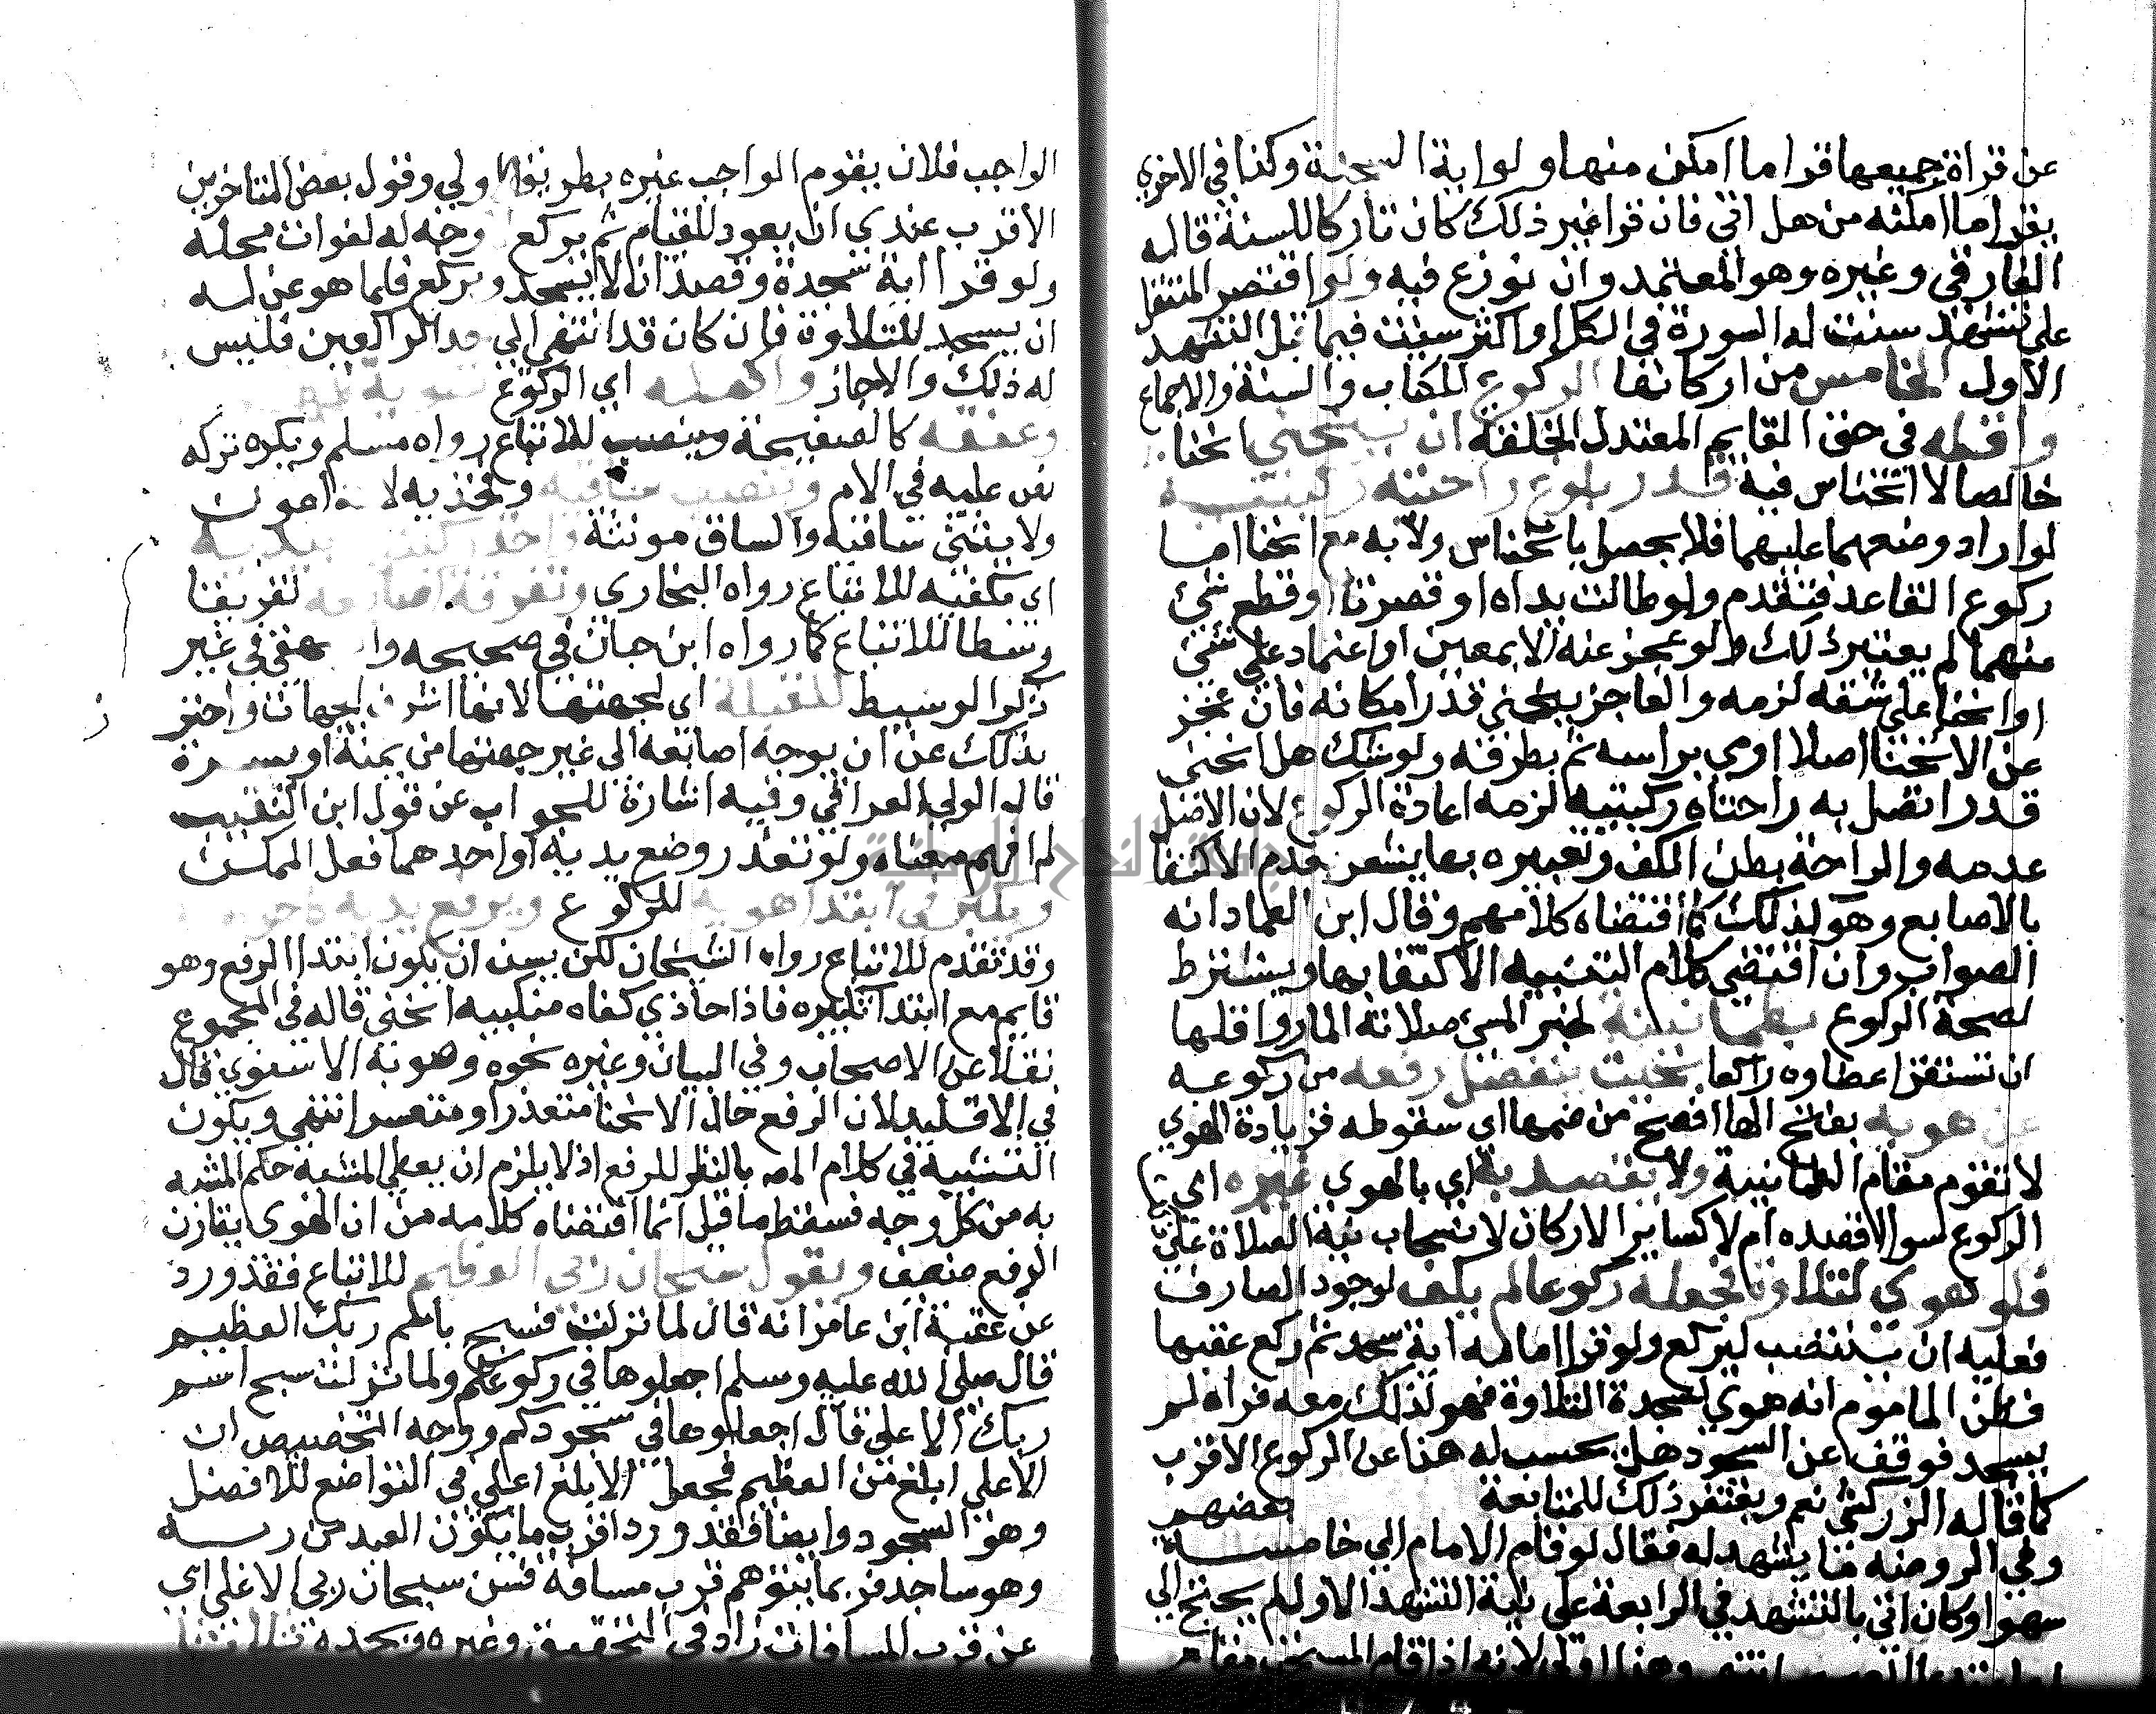 عن قراة جميعها قرا ما امكن منها ولو اية السجدة وكذا في الاخري
بقرا ما امكنه من هل اتي فان قرا غير ذلك كان تاركا للسنة قاله
الفارقي وغيره وهو المعتمد وان نوزع فيه ولو اقتصر المتنفل
علي تشهد سنت له السورة في الكل او اكثر سنت فيما قبل التشهد
الاول الخامس من اركانها الركوع للكتاب والسنة والاجماع
واقله في حق القايم المعتدل الخلقة ان ينحني انحنا
خالصا لا انخناس فيه قدر بلوغ راحتيه ركبتيه
لو اراد وضعهما عليهما فلا يحصل بانخناس ولا به مع انحنا اما
ركوع القاعد فتقدم ولو طالت يداه او قصرتا او قطع شئ
منهما لم يعتبر ذلك ولو عجز عنه الا بمعين او اعتماد علي شئ
او انحنا علي شقه لزمه والعاجز ينحني قدر امكانه فان عجز
عن الانحنا اصلا اومي براسه ثم بطرفه ولو شك هل انحني
قدرا تصل به راحتاه ركبتيه لزمه اعادة الركوع لان الاصل
عدمه والراحة بطن الكف وتعبيره بها يشعر بعدم الاكتفا
بالاصابع وهو كذلك كما اقتضاه كلامهم وقال ابن العماد انه
الصواب وان اقتضي كلام التنبيه الاكتفا بها ويشترط
لصحة الركوع بطمانينة لخبر المسئ صلاته المار واقلها
ان تستقر اعضاوه راكعا بحيث ينفصل رفعه من ركوعه
عن هويه بفتح الها افصح من ضمها اي سقوطه فزيادة الهوي
لا تقوم مقام الطمانينة ولا يقصد به اي بالهوي غيره اي
الركوع سوا قصده ام لا كساير الاركان لانسحاب نية الصلاة علي
فلو هوي لتلاوة فجعله ركوعا لم يكف لوجود الصارف
فعليه ان ينتصب ليركع ولو قرا امامه اية سجدة ثم ركع عقبها
فظن الماموم انه هوي لسجدة التلاوة فهو لذلك معه فراه لم
يسجد فوقف عن السجود هل يحسب له هذا عن الركوع الاقرب
كما قاله الزركشي نعم ويغتفر ذلك للمتابعة بعضهم
وفي الروضة ما يشهد له فقال لو قام الامام الي خامسة
سهوا وكان اتي بالتشهد في الرابعة علي نية التشهد الاول لم يحتج الي
وهذا اولي لانه اذا قام المستحب مقام
الواجب فلان يقوم الواجب غيره بطريق الاولي وقول بعض المتاخرين
الاقرب عندي ان يعود للقيام ثم يركع وجه له لفوات محله
ولو قرا اية سجدة وقصد ان لا يسجد ويركع فلما هوي عن له
ان يسجد للتلاوة فان كان قد انتهي الي حد الراكعين فليس
له ذلك والا جاز واكمله اي الركوع تسوية ظهره
وعنقه كالصفيحة وينصب للاتباع رواه مسلم ويكره تركه
نص عليه في الام وينصب ساقيه وفخذيه لانه اعون
ولا يثني ساقيه والساق مونثة واخذ ركبتيه بيديه
اي بكفيه للاتباع رواه البخاري وتفرقة اصابعه تفريقا
وسطا للاتباع كما رواه ابن حبان في صحيحه والبيهقي في غير
ذكر الوسيط للقبلة اي لجهتها لانها اشرف الجهات واحترز
بذلك عن ان يوجه اصابعه الي غير جهتها من يمنة او يسرة
قاله الولي العراقي وفيه اشارة للجواب عن قول ابن النقيب
لم افهم معناه ولو تعذر وضع يديه او احدهما فعل الممكن
ويكبر في ابتدا هويه للركوع ويرفع يديه كاحرامه
وقد تقدم للاتباع رواه الشيخان لكن يسن ان يكون ابتدا الرفع وهو
قايم مع ابتدا تكبيره فاذا حاذي كفاه منكبيه انحني قاله في المجموع
نقلا عن الاصحاب وفي البيان وغيره نحوه وصوبه الاسنوي قال
في الاقليد لان الرفع حال الانحنا متعذر او متعسر انتهي ويكون
التشبيه في كلام المص بالنظر للرفع اذ لا يلزم ان يعطي المشبه حكم المشبه
به من كل وجه فسقط ما قيل انما اقتضاه كلامه من ان الهوي يقارن
الرفع ضعيف ويقول سبحان ربي العظيم للاتباع فقد ورد
عن عقبة ابن عامر انه قال لما نزلت فسبح باسم ربك العظيم
قال صلي الله عليه وسلم اجعلوها في ركوعكم ولما نزلت سبح اسم
ربك الاعلي قال اجعلوها في سجودكم ووجه التخصيص ان
الاعلي ابلغ من العظيم فجعل الابلغ اعلي في التواضع للافضل
وهو السجود وايضا فقد ورد اقرب ما يكون العبد من ربه
وهو ساجد فربما يتوهم قرب مسافة فسن سبحان ربي الاعلي اي
عن قرب المسافات زاد في التحقيق وغيره وبحمده ثلاثا